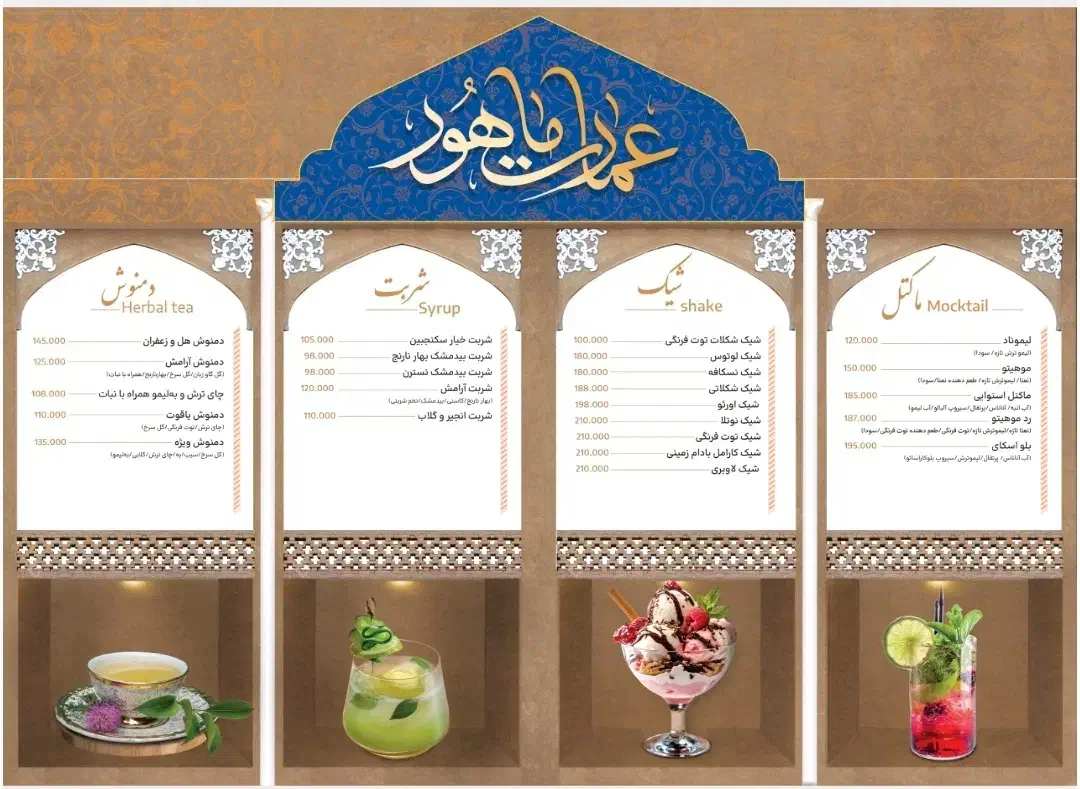 عمارت ماهور
ماکتل Mocktail
لیموناد 120.000
(لیمو ترش تازه/ سودا)
موهیتو 150.000
(نعنا/ لیموترش تازه/ طعم دهنده نعنا/سودا)
ماکتل استوایی 185.000
(آب انبه/ آناناس/پرتقال/سیروپ آلبالو/آب لیمو)
رد موهیتو 187.000
(نعنا تازه/لیموترش تازه/توت فرنگی/طعم دهنده توت فرنگی/سودا)
بلو اسکای 195.000
(آب آناناس/ پرتقال/لیموترش/سیروپ بلوکاراسائو)
شیک shake
شیک شکلات توت فرنگی 100.000
شیک لوتوس 180.000
شیک نسکافه 180.000
شیک شکلاتی 188.000
شیک اورئو 198.000
شیک نوتلا 210.000
شیک توت فرنگی 210.000
شیک کارامل بادام زمینی 210.000
شیک لاوبری 210.000
شربت Syrup
شربت خیار سکنجبین 105.000
شربت بیدمشک بهار نارنج 98.000
شربت بیدمشک نسترن 98.000
شربت آرامش 120.000
(بهار نارنج/کاسنی/بیدمشک/تخم شربتی)
شربت انجیر و گلاب 110.000
دمنوش Herbal tea
دمنوش هل و زعفران 145.000
دمنوش آرامش 125.000
(گل گاو زبان/گل سرخ/بهارنارنج/همراه با نبات)
چای ترش و به‌لیمو همراه با نبات 108.000
دمنوش یاقوت 110.000
(چای ترش/توت فرنگی/گل سرخ)
دمنوش ویژه 135.000
(گل سرخ/سیب/به/چای ترش/گلابی/به‌لیمو)